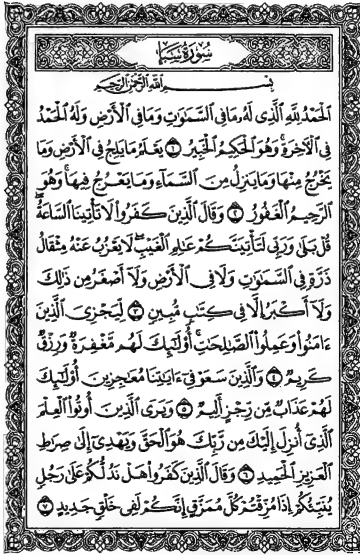 سُورَةُ سَبَأ
بِسْمِ اللَّهِ الرَّحْمَٰنِ الرَّحِيمِ
الْحَمْدُ لِلَّهِ الَّذِي لَهُ مَا فِي السَّمَاوَاتِ وَمَا فِي الْأَرْضِ وَلَهُ الْحَمْدُ
فِي الْآخِرَةِ وَهُوَ الْحَكِيمُ الْخَبِيرُ ١ يَعْلَمُ مَا يَلِجُ فِي الْأَرْضِ وَمَا
يَخْرُجُ مِنْهَا وَمَا يَنزِلُ مِنَ السَّمَاءِ وَمَا يَعْرُجُ فِيهَا وَهُوَ
الرَّحِيمُ الْغَفُورُ ٢ وَقَالَ الَّذِينَ كَفَرُوا لَا تَأْتِينَا السَّاعَةُ
قُلْ بَلَىٰ وَرَبِّي لَتَأْتِيَنَّكُمْ عَالِمِ الْغَيْبِ لَا يَعْزُبُ عَنْهُ مِثْقَالُ
ذَرَّةٍ فِي السَّمَاوَاتِ وَلَا فِي الْأَرْضِ وَلَا أَصْغَرُ مِن ذَٰلِكَ
وَلَا أَكْبَرُ إِلَّا فِي كِتَابٍ مُّبِينٍ ٣ لِّيَجْزِيَ الَّذِينَ
ءَامَنُوا وَعَمِلُوا الصَّالِحَاتِ أُولَٰئِكَ لَهُم مَّغْفِرَةٌ وَرِزْقٌ
كَرِيمٌ ٤ وَالَّذِينَ سَعَوْ فِي ءَايَاتِنَا مُعَاجِزِينَ أُولَٰئِكَ
لَهُمْ عَذَابٌ مِّن رِّجْزٍ أَلِيمٌ ٥ وَيَرَى الَّذِينَ أُوتُوا الْعِلْمَ
الَّذِي أُنزِلَ إِلَيْكَ مِن رَّبِّكَ هُوَ الْحَقَّ وَيَهْدِي إِلَىٰ صِرَاطِ
الْعَزِيزِ الْحَمِيدِ ٦ وَقَالَ الَّذِينَ كَفَرُوا هَلْ نَدُلُّكُمْ عَلَىٰ رَجُلٍ
يُنَبِّئُكُمْ إِذَا مُزِّقْتُمْ كُلَّ مُمَزَّقٍ إِنَّكُمْ لَفِي خَلْقٍ جَدِيدٍ ٧